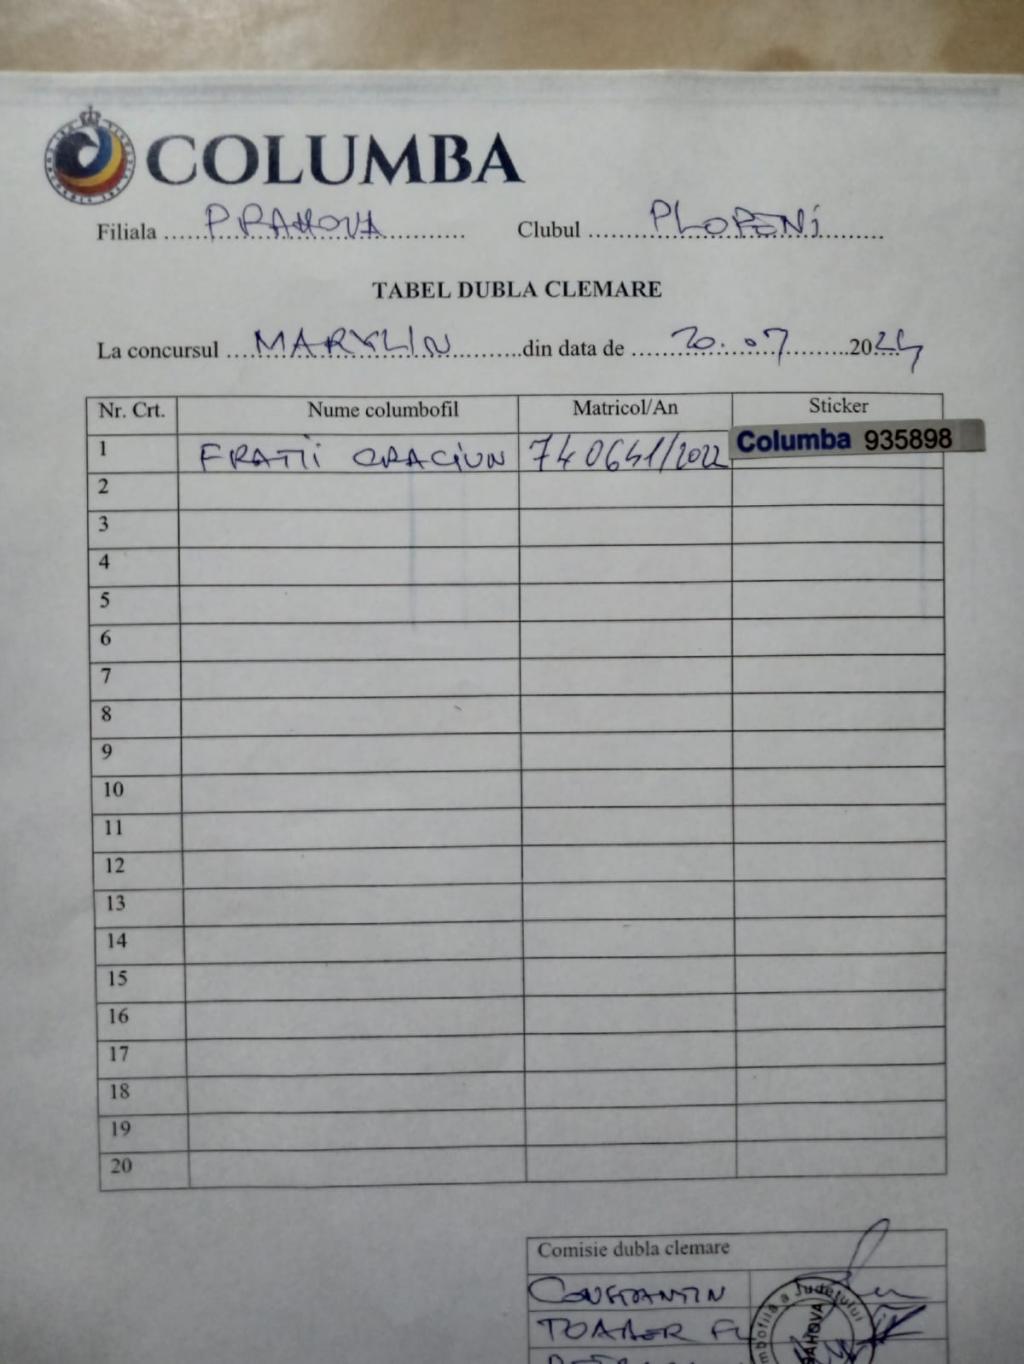 COLUMBA
Filiala ..... PRAHOVA ..... Clubul ..... PLOPENi .....
TABEL DUBLA CLEMARE
La concursul ..... MARYLIN ..... din data de ..... 20.07 ..... 2024
Nr. Crt. Nume columbofil Matricol/An Sticker
1 FRATII CRACIUN 740641/2022 Columba 935898
2
3
4
5
6
7
8
9
10
11
12
13
14
15
16
17
18
19
20
Comisie dubla clemare
CONSTANTIN
TOADER FL
a Județului